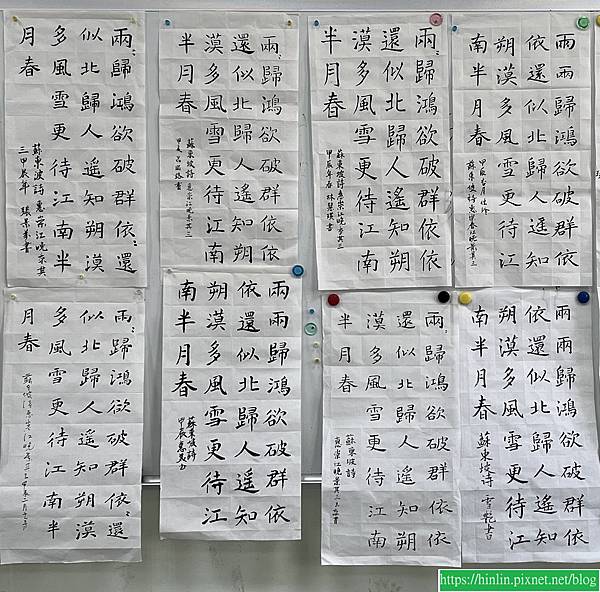 兩〻歸鴻欲破群依〻還
似北歸人遙知朔漠
多風雪更待江南半
月春
蘇東坡詩惠崇江晚景其
三甲辰年
兩〻歸鴻欲破群依依
還似北歸人遙知朔
漠多風雪更待江南
半月春
蘇東坡詩惠崇江晚景其二
兩〻歸鴻欲破群依依
還似北歸人遙知朔
漠多風雪更待江南
半月春
蘇東坡詩惠崇江晚景其二
甲辰年春林慧瑛書
兩兩歸鴻欲破群依
依還似北歸人遙知
朔漠多風雪更待江
南半月春
兩〻歸鴻欲破群依〻還
似北歸人遙知朔漠
多風雪更待江南半
月春
兩兩歸鴻欲破群依
依還似北歸人遙知
朔漠多風雪更待江
南半月春
蘇東坡詩
兩〻歸鴻欲破群依依
還似北歸人遙知朔
漠多風雪更待江南
半月春
蘇東坡詩
兩兩歸鴻欲破群依
依還似北歸人遙知
朔漠多風雪更待江
南半月春
蘇東坡詩
https://hinlin.pixnet.net/blog